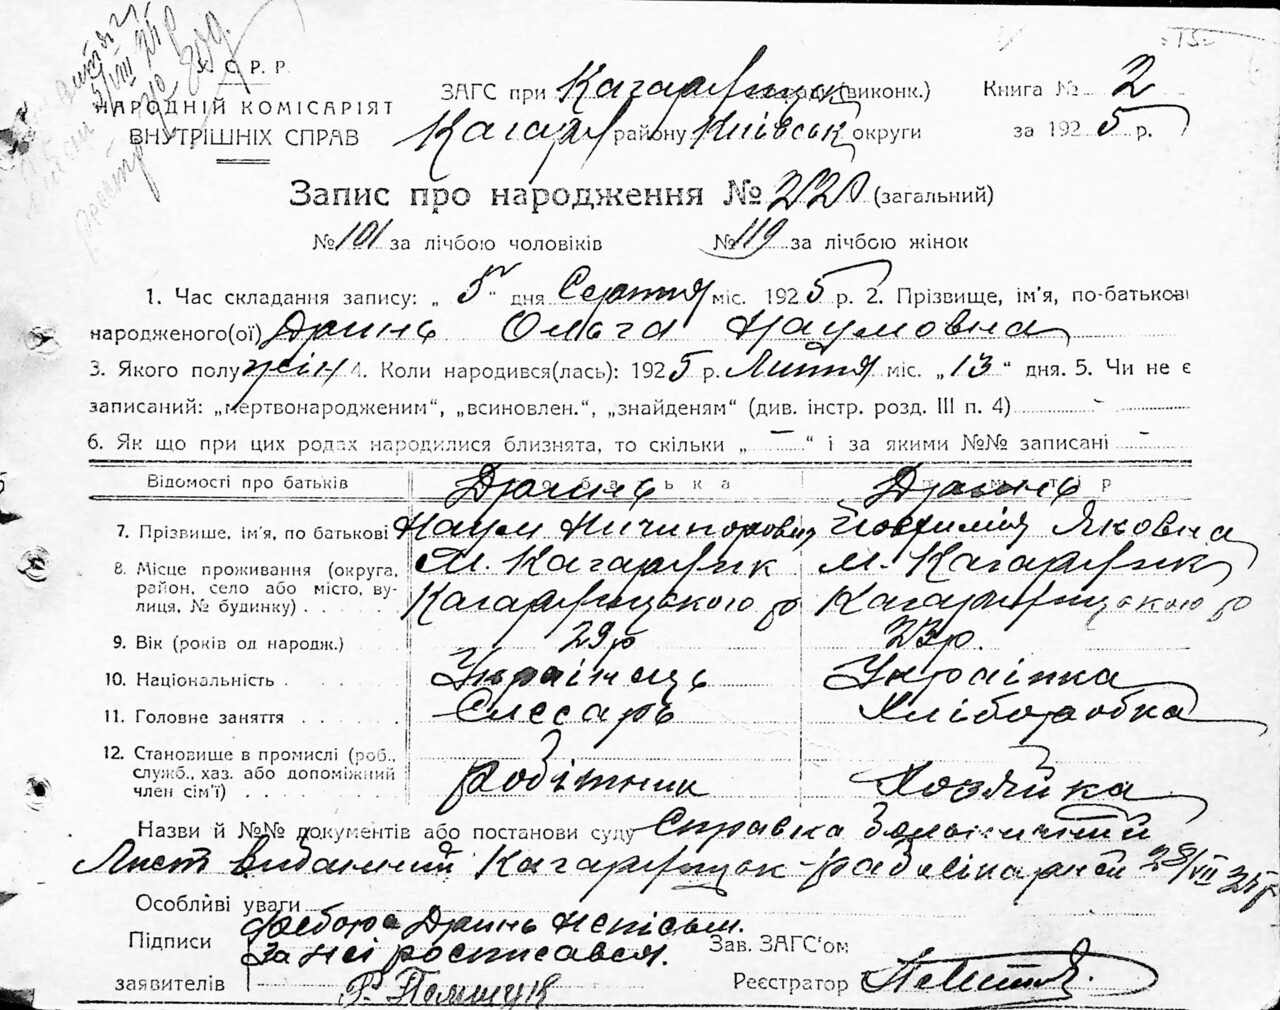 У. С. Р. Р.
НАРОДНІЙ КОМІСАРІЯТ
ВНУТРІШНІХ СПРАВ
ЗАГС при Кагарлицьк (виконк.)
Кагарл району Київськ округи
Книга № 2
за 1925 р.
Запис про народження № 220 (загальний)
№ 101 за лічбою чоловіків № 119 за лічбою жінок
1. Час складання запису: „ 5 “ дня Серпня міс. 1925 р. 2. Прізвище, ім'я, по-батькові
народженого(ої) Дринь Ольга Наумовна
3. Якого полу жін 4. Коли народився(лась): 1925 р. Липня міс. „ 13 “ дня. 5. Чи не є
записаний: „мертвонародженим“, „всиновлен.“, „знайденям“ (див. інстр. розд. III п. 4) -
6. Як що при цих родах народилися близнята, то скільки „ — “ і за якими №№ записані -
Відомості про батьків Дринь Дринь
7. Прізвище, ім'я, по батькові Наум Ничипорович Яковна
8. Місце проживання (округа, М. Кагарлик М. Кагарлик
район, село або місто, ву- Кагарлицького р Кагарлицького р
лиця, № будинку)
9. Вік (років од народж.) 29 р 23 р.
10. Національність Українець Українка
11. Головне заняття Слєсарь Хліборобка
12. Становище в промислі (роб.,
служб., хаз. або допоміжний робітник Хозяйка
член сім'ї)
Назви й №№ документів або постанови суду Справка
Лист виданий Кагарлицьк 28/VII 25 р
Особливі уваги
Дринь неписьм.
Підписи за неї росписався. Зав. ЗАГС'ом
заявителів Реєстратор